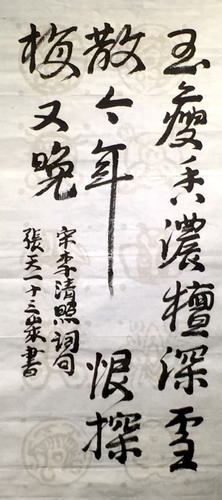 玉瘦香濃檀深雪
散今年恨探
梅又晚
宋李清照詞句
張天一十三歲書